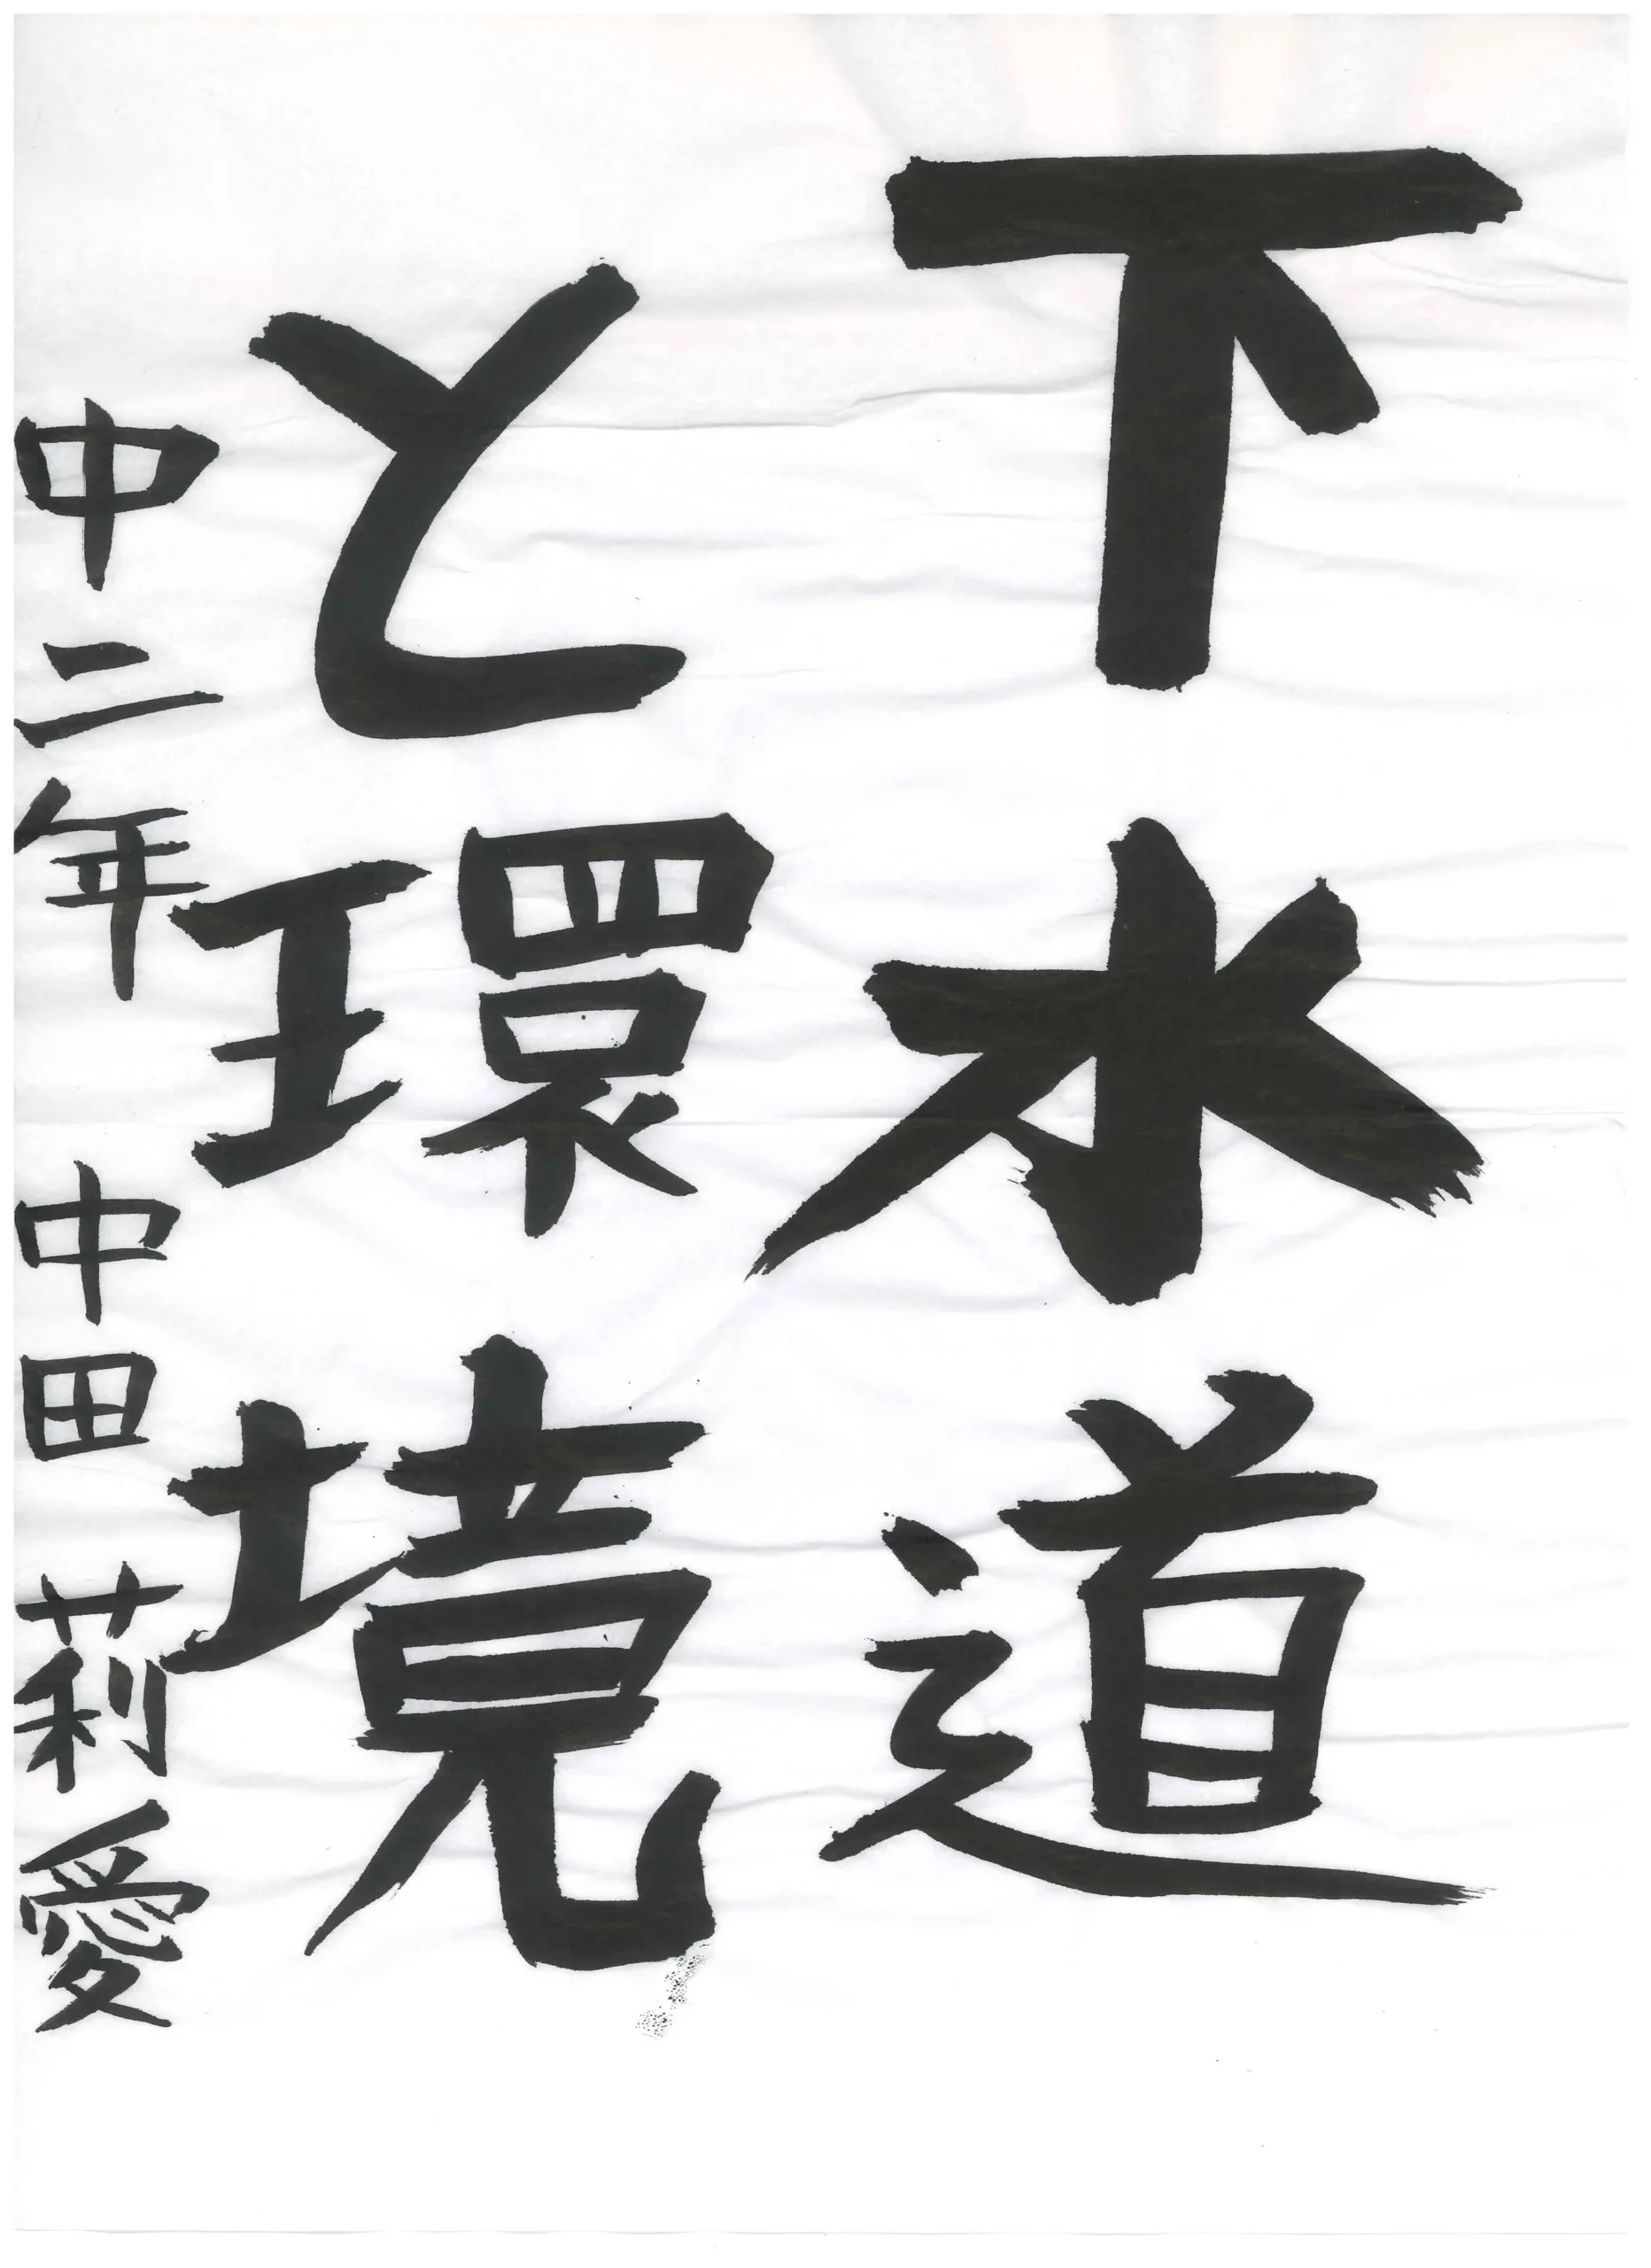 下水道
と環境
中二年 中田 莉愛